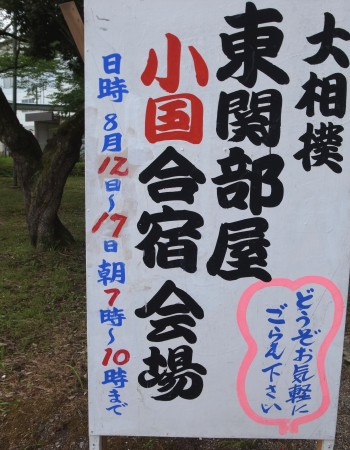 大相撲
東関部屋
小国合宿会場
日時 8月12日～17日 朝7時～10時まで
どうぞお気軽に
ごらん下さい